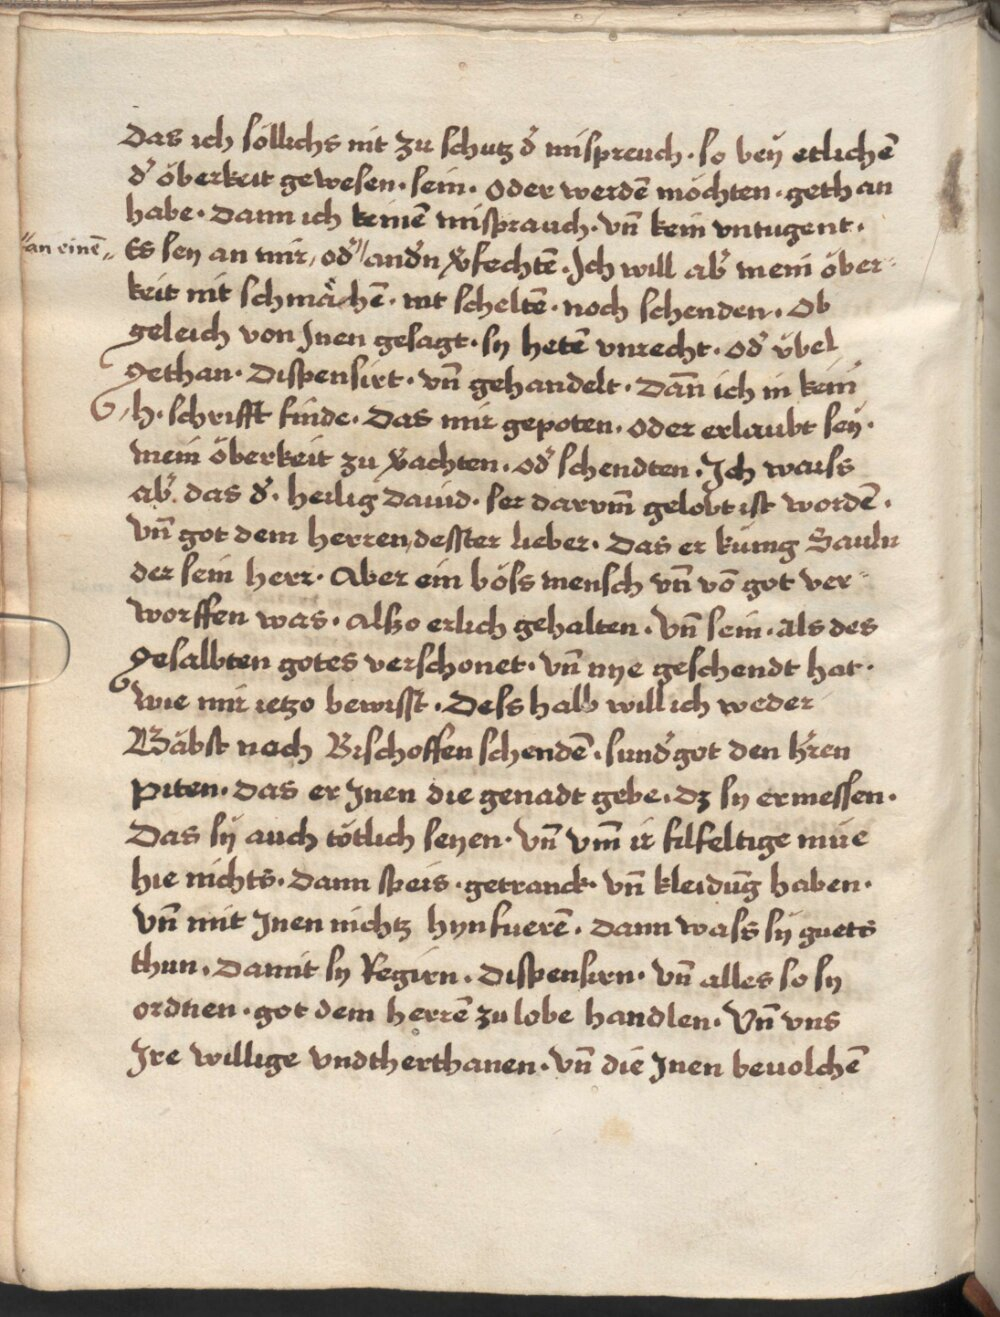 Das ich söllichs nit zu schutz d̕ mispreuch · so beÿ etlichē
d̕ öberkeit gewesen · sein · oder werdē möchten · gethan
habe · Dann ich keinē misprauch · vn̄ kein vntugent ·
"an einē" Es seÿ an mir, od̕ " and̕n v̕fechtē · Ich will ab̕ mein öber-
keit nit schmächē · nit scheltē · noch schenden · Ob
geleich von Inen gesagt · sÿ hetē vnrecht · od̕ übel
gethan · Dispensirt · vn̄ gehandelt · Dan̄ ich in kein
h. schrifft finde · Das mir gepoten · oder erlaubt seÿ ·
mein öberkeit zu v̕achten · od̕ schendten · Ich waiss
ab̕ das d̕ · heilig Dauid · ser darum̄ gelobt ist wordē ·
vn̄ got dem herren, desster lieber · Das er künig Sauln
der sein herr · Aber ein böss mensch vn̄ vō got ver-
worffen was · Alszo erlich gehalten · vn̄ sein · als des
gesalbten gotes verschonet · vn̄ nÿe geschendt hat ·
wie mir ietzo bewisst · Dess halb will ich weder
Bäbst noch Bischoffen schendē · sund̕ got den h̕ren
piten · das er Inen die genadt gebe · dz sÿ ermessen ·
Das sÿ auch tötlich seÿen · vn̄ vm̄ ir filfeltige müe
hie nichts · Dann speis · getranck · vn̄ kleidūg haben ·
vn̄ mit Inen nichtz hynfuerē · dann wass sÿ guets
thun · Damit sÿ Regirn · Dispensirn · vn̄ alles so sÿ
ordnen · got dem herrē zu lobe handlen · Vn̄ vns
Ire willige vndtherthanen · vn̄ die Inen beuolchē